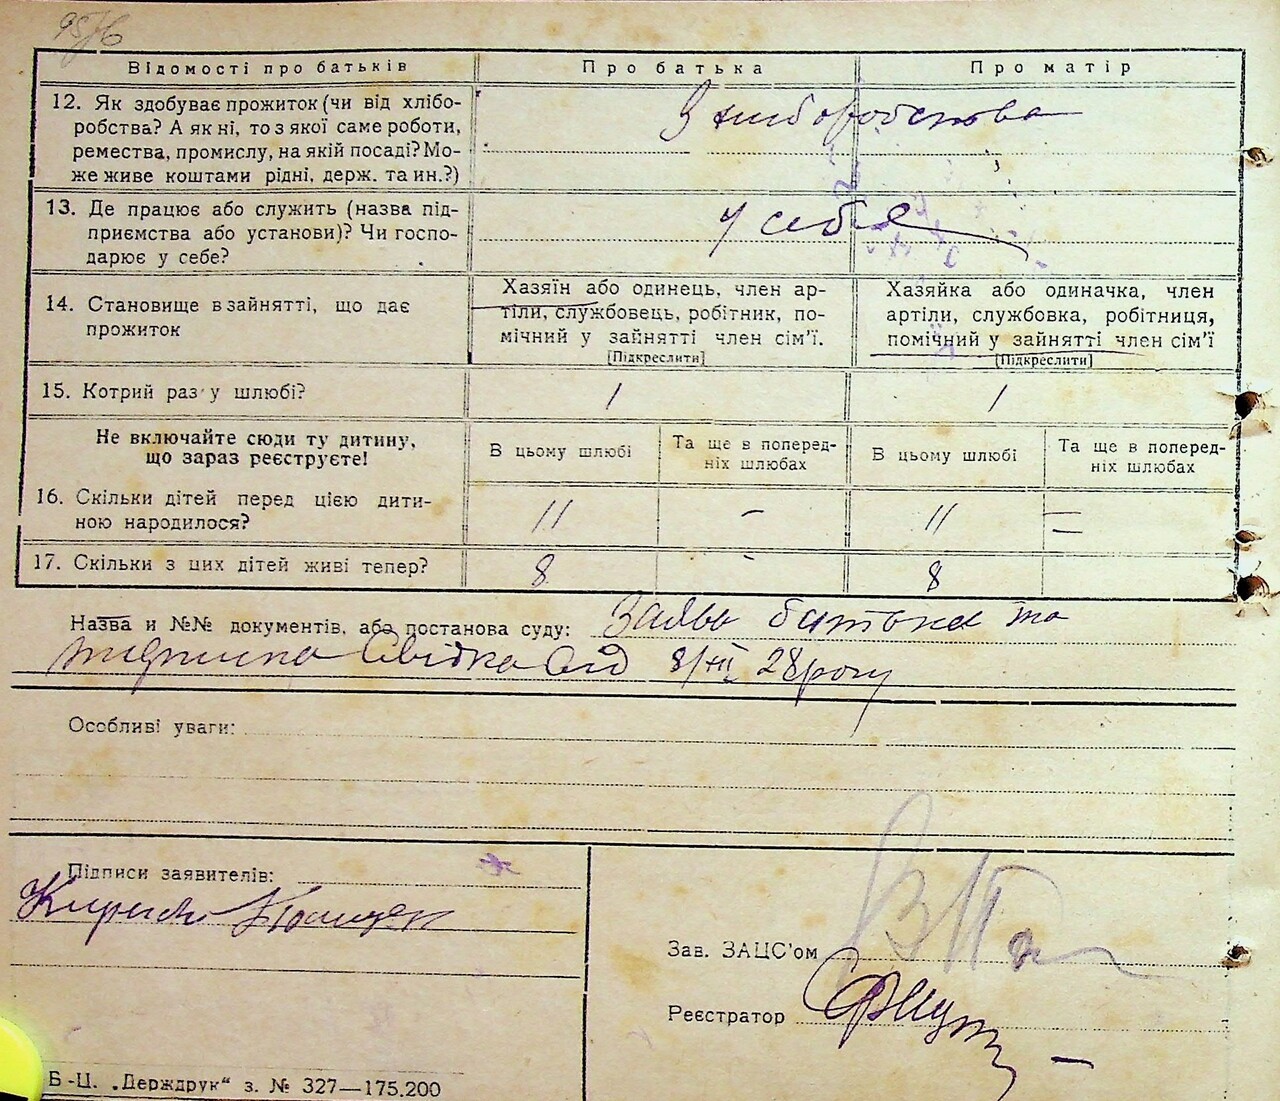 95/6
Відомості про батьків
Про батька
Про матір
12. Як здобуває прожиток (чи від хлібо-
робства? А як ні, то з якої саме роботи,
ремества, промислу, на якій посаді? Мо-
же живе коштами рідні, держ. та ин.?)
З хліборобства
13. Де працює або служить (назва під-
приємства або установи)? Чи госпо-
дарює у себе?
У себе
14. Становище в зайнятті, що дає
прожиток
Хазяїн або одинець, член ар-
тіли, службовець, робітник, по-
мічний у зайнятті член сім'ї.
[Підкреслити]
Хазяйка або одиначка, член
артіли, службовка, робітниця,
помічний у зайнятті член сім'ї
[Підкреслити]
15. Котрий раз у шлюбі?
1
1
Не включайте сюди ту дитину,
що зараз реєструєте!
В цьому шлюбі
Та ще в поперед-
ніх шлюбах
В цьому шлюбі
Та ще в поперед-
ніх шлюбах
16. Скільки дітей перед цією дити-
ною народилося?
11
-
11
-
17. Скільки з цих дітей живі тепер?
8
-
8
Назва и №№ документів, або постанова суду: Заява батька та
підписка свідка від 8/XII 28 року
Особливі уваги:
Підписи заявителів:
Зав. ЗАЦС'ом
Реєстратор
Б-Ц. „Держдрук" з. № 327—175.200